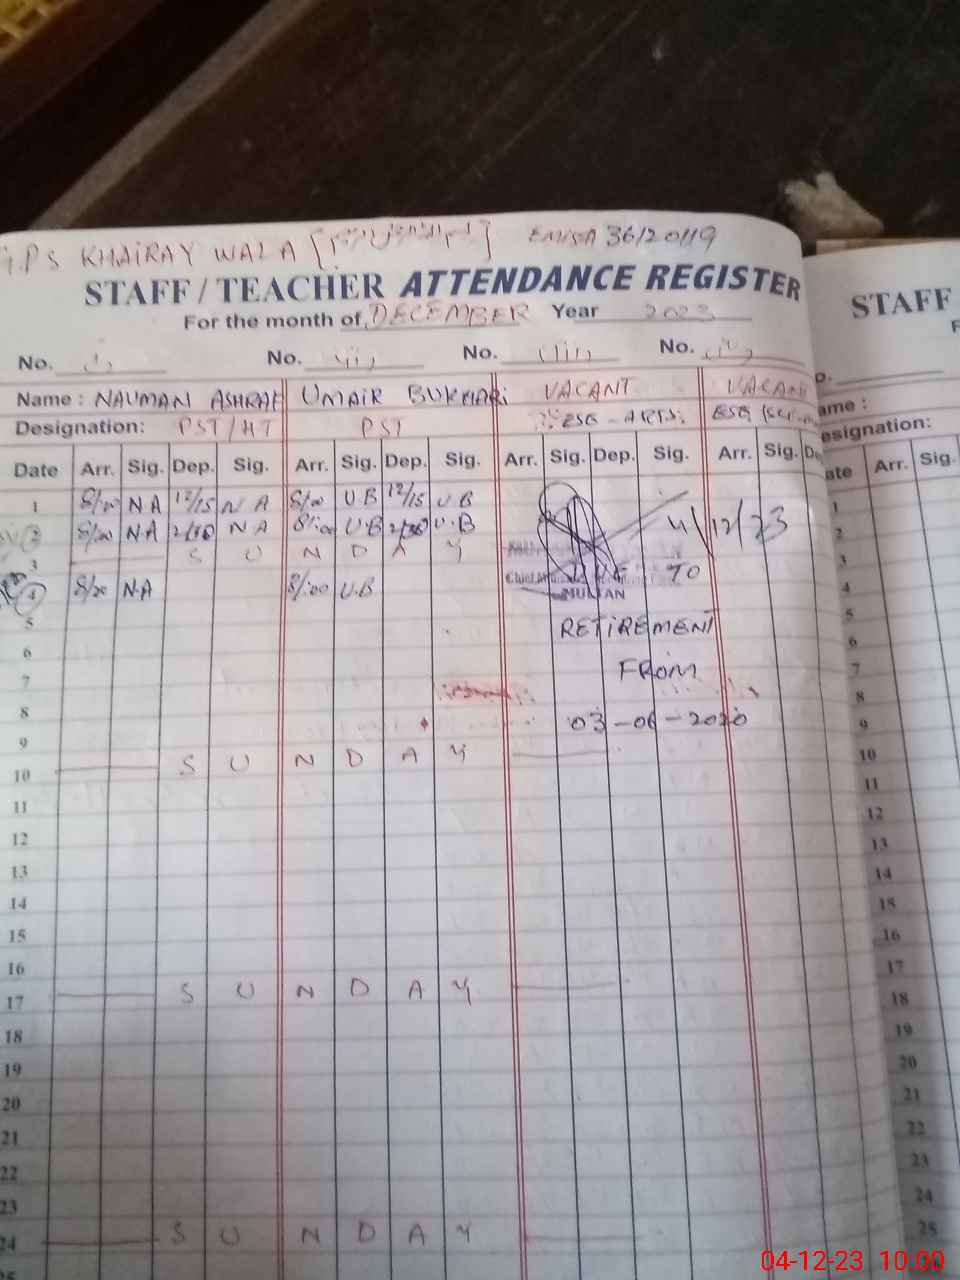 G.P.S KHAIRAY WALA [بسم الله الرحمن الرحيم] EMIS# 36120119
STAFF / TEACHER ATTENDANCE REGISTER
For the month of DECEMBER Year 2023
No. i No. ii No. iii No. iv
Name : NAUMAN ASHRAF UMAIR BUKHARI VACANT VACANT
Designation: PST/HT PST ESE - ARTS
Date Arr. Sig. Dep. Sig. Arr. Sig. Dep. Sig. Arr. Sig. Dep. Sig. Arr. Sig. Dep
1 8/00 NA 12/15 NA 8/00 U.B 12/15 U.B
2 8/00 NA 2/30 NA 8/:00 U.B 2/30 U.B 4/12/23
3 S U N D A Y
4 8/00 N.A 8/:00 U.B DUE TO
MULTAN
5 RETIREMENT
6
7 FROM
8
9 03-06-2020
10 S U N D A Y
11
12
13
14
15
16
17 S U N D A Y
18
19
20
21
22
23
24 S U N D A Y
25
STAFF
F
o.
ame :
esignation:
ate Arr. Sig.
1
2
3
4
5
6
7
8
9
10
11
12
13
14
15
16
17
18
19
20
21
22
23
24
25
04-12-23 10:00